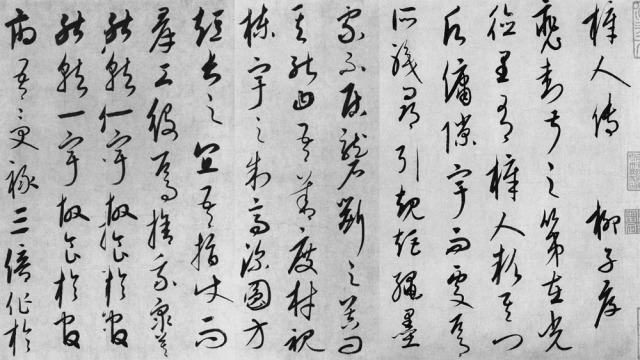 梓人傳 柳子厚
裴封叔之第在光
德里有梓人款其門
願傭隟宇而處焉
所職尋引規矩繩墨
家不居礱斲之器問
其能曰吾善度材視
棟宇之制高深圓方
短長之宜吾指使而
群工役焉捨我衆莫
能就一宇故食於官
能就一宇故食於官
府吾受祿三倍作於